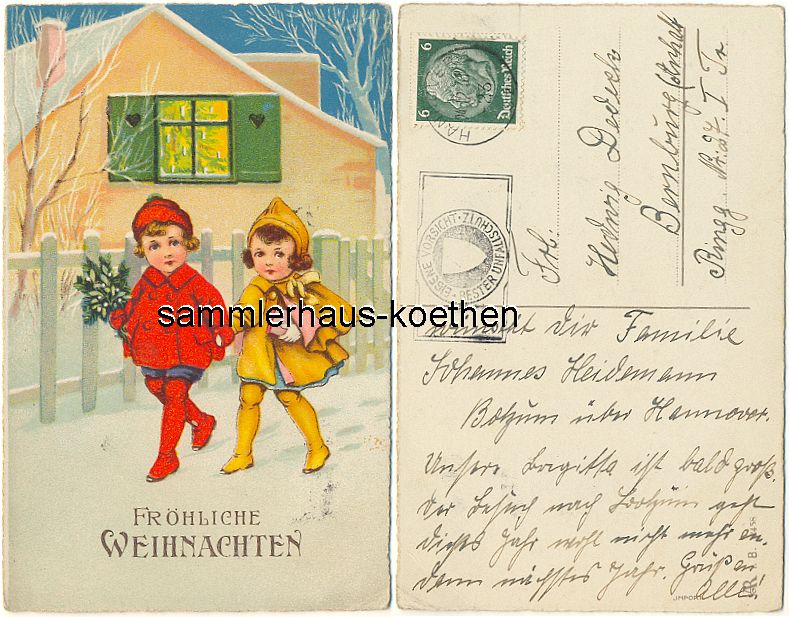 FRÖHLICHE
WEIHNACHTEN
sammlerhaus-koethen
6 6
Deutsches Reich
EIGENE VORSICHT
BESTER UNFALLSCHUTZ
Frl.
Hedwig Dedich
Bernburg (Anhalt
Ringg Str. 27. I Tr
wünscht Dir Familie
Johannes Heidemann
Bolzum über Hannover.
Unsere Brigitta ist bald groß.
Der Besuch nach Bolzum geht
dieses Jahr wohl nicht mehr an.
dann nächstes Jahr. Grüß an
Alle!
IMPORT